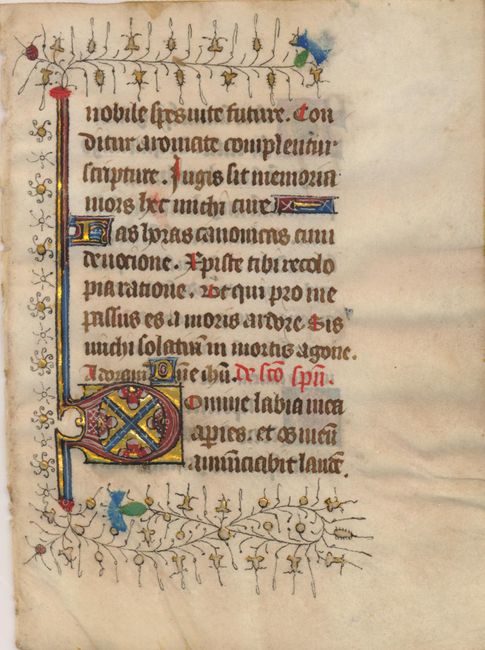 nobile spes uite future. Con
ditur aromate complentur
scripture. Jugis sit memoria
mors hec michi cure
Has horas canonicas cum
deuocione. Xpiste tibi recolo
pia ratione. Ut qui pro me
passus es amoris ardore Sis
michi solatiũ in mortis agone.
Adoram Dñe ihũ. de scõ spũ.
Domine labia mea
aperies. et os meũ
annũciabit laudẽ.